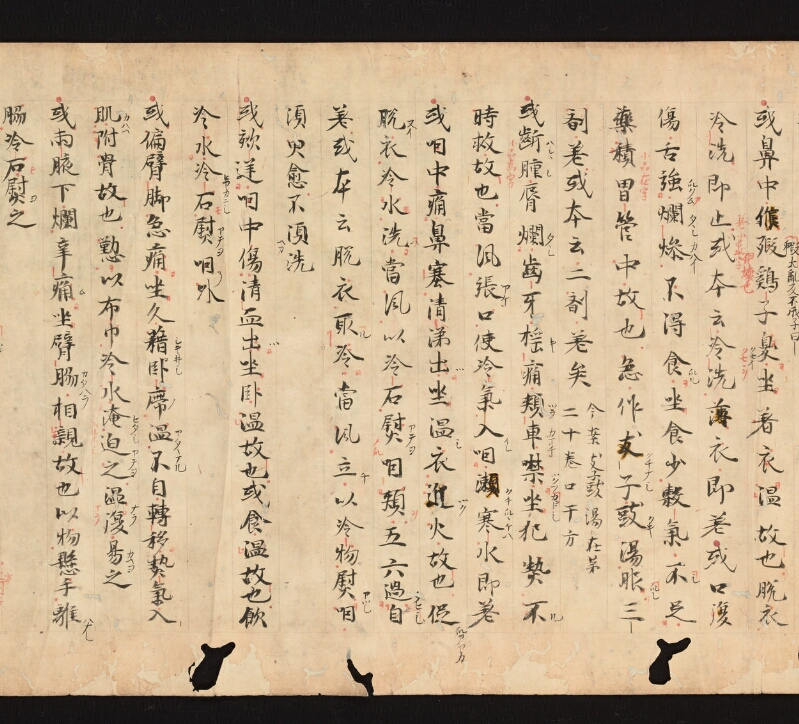 或鼻中作毈鷄子臭坐着衣温故也脱衣
冷洗即止或本云冷洗薄衣即差或口復
傷舌強爛燥不得食坐食少穀氣不足
藥積胃管中故也急作支子豉湯服三
剤差或本云二剤差矣
今案支子豉湯在第
二十卷口干方
或断腫脣爛齒牙揺痛頬車噤坐犯勢不
時救故也當風張口使冷氣入咽漱寒水即差
或咽中痛鼻塞清涕出坐温衣近火故也促
脱衣冷水洗當風以冷石熨咽頬五六過自
差或本云脱衣取冷當風立以冷物熨咽
須臾愈不須洗
或欬逆咽中傷清血出坐臥温故也或食温故也飲
冷水冷石熨咽外
或偏臂脚急痛坐久藉臥席温不自轉移勢氣入
肌附骨故也懃以布巾冷水淹迫之温復易之
或両腋下爛辛痛坐臂腸相親故也以物懸手離
腸冷石熨之